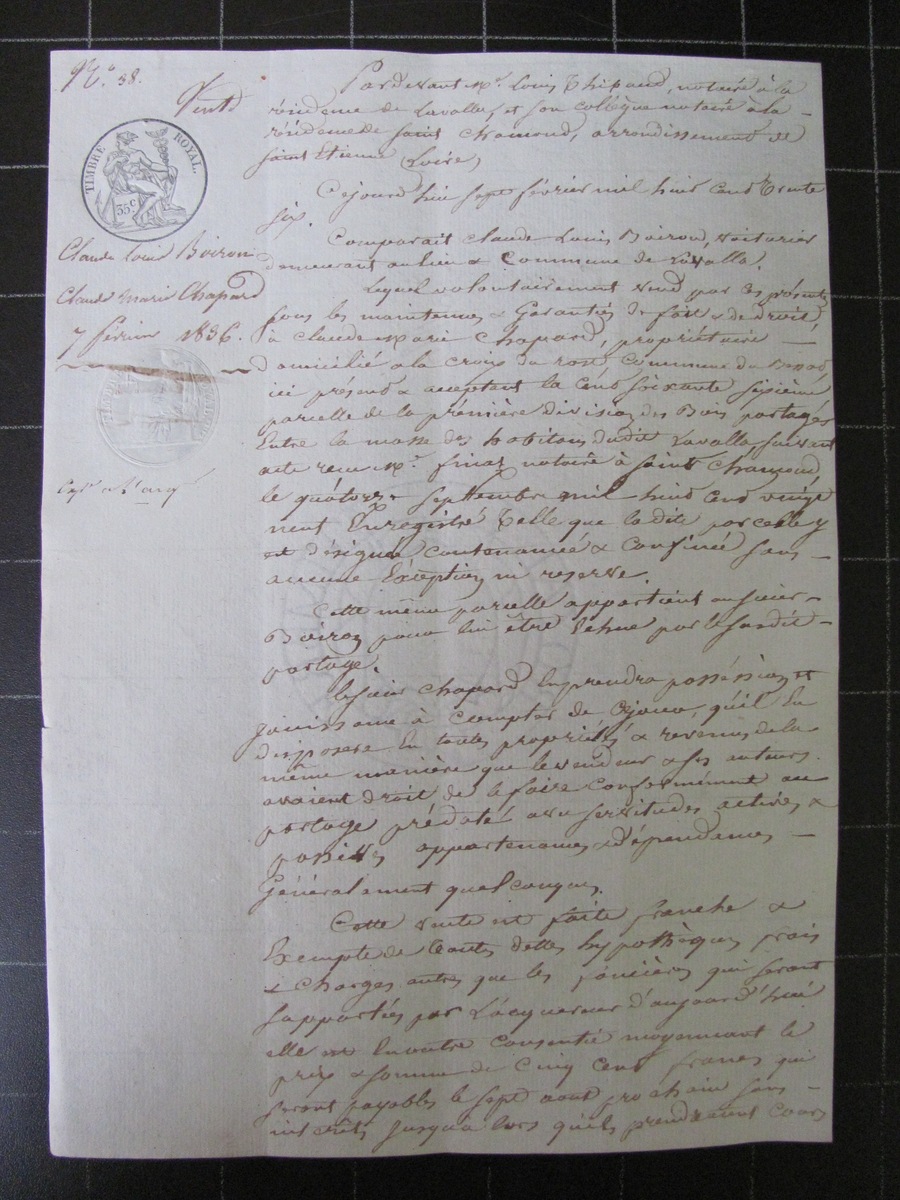 N.° 38.
Vente
TIMBRE ROYAL.
35 c
Claude Louis Boiron
Claude Marie Chapard
7 février 1836.
Pardevant Me. Louis Thibaud, notaire à la
résidence de Lavalla, et son collègue notaire à la
résidence de Saint Chamond, arrondissement de
Saint Etienne (Loire)
Cejourd'hui sept février mil huit cent trente
six.
Comparait Claude Louis Boiron, voiturier
demeurant au lieu & commune de Lavalla.
Lequel volontairement vend par ces présentes
sous les maintenues & Garanties de fait & de droit,
à Claude Marie Chapard, propriétaire
domicilié a la croix du commune du
ici présent & acceptant la cent soixante sixième
parcelle de la première division des Bois partagés
Entre la masse des habitans dudit Lavalla suivant
acte recu Me. finaz notaire à Saint Chamond
le quatorze Septembre mil huit cent vingt
neuf Enregistré telle que la dite parcelle y
est désignée contenancée & confinée sans
aucune Exception ni reserve.
Cette même parcelle appartient au sieur
Boiron pour lui être échue par le susdit
partage.
Le sieur Chapard En prendra possession et
jouissance à compter de cejour, qu'il En
disposera En toutes propriétés & revenus de la
même manière que le vendeur & ses auteurs
avaient droit de le faire conformément au
partage prédaté aux servitudes actives &
passives appartenances & dépendances
Généralement quelconques.
Cette vente est faite franche &
Exempte de toutes dettes hypothèques frais
& charges autres que les foncières qui seront
supportées par L'acquereur d'aujourd'hui
elle est En outre consentie moyennant le
prix & somme de Cinq Cent francs qui
seront payables le sept aout prochain sans
intérêts jusqu'a lors qu'ils prendraient cours